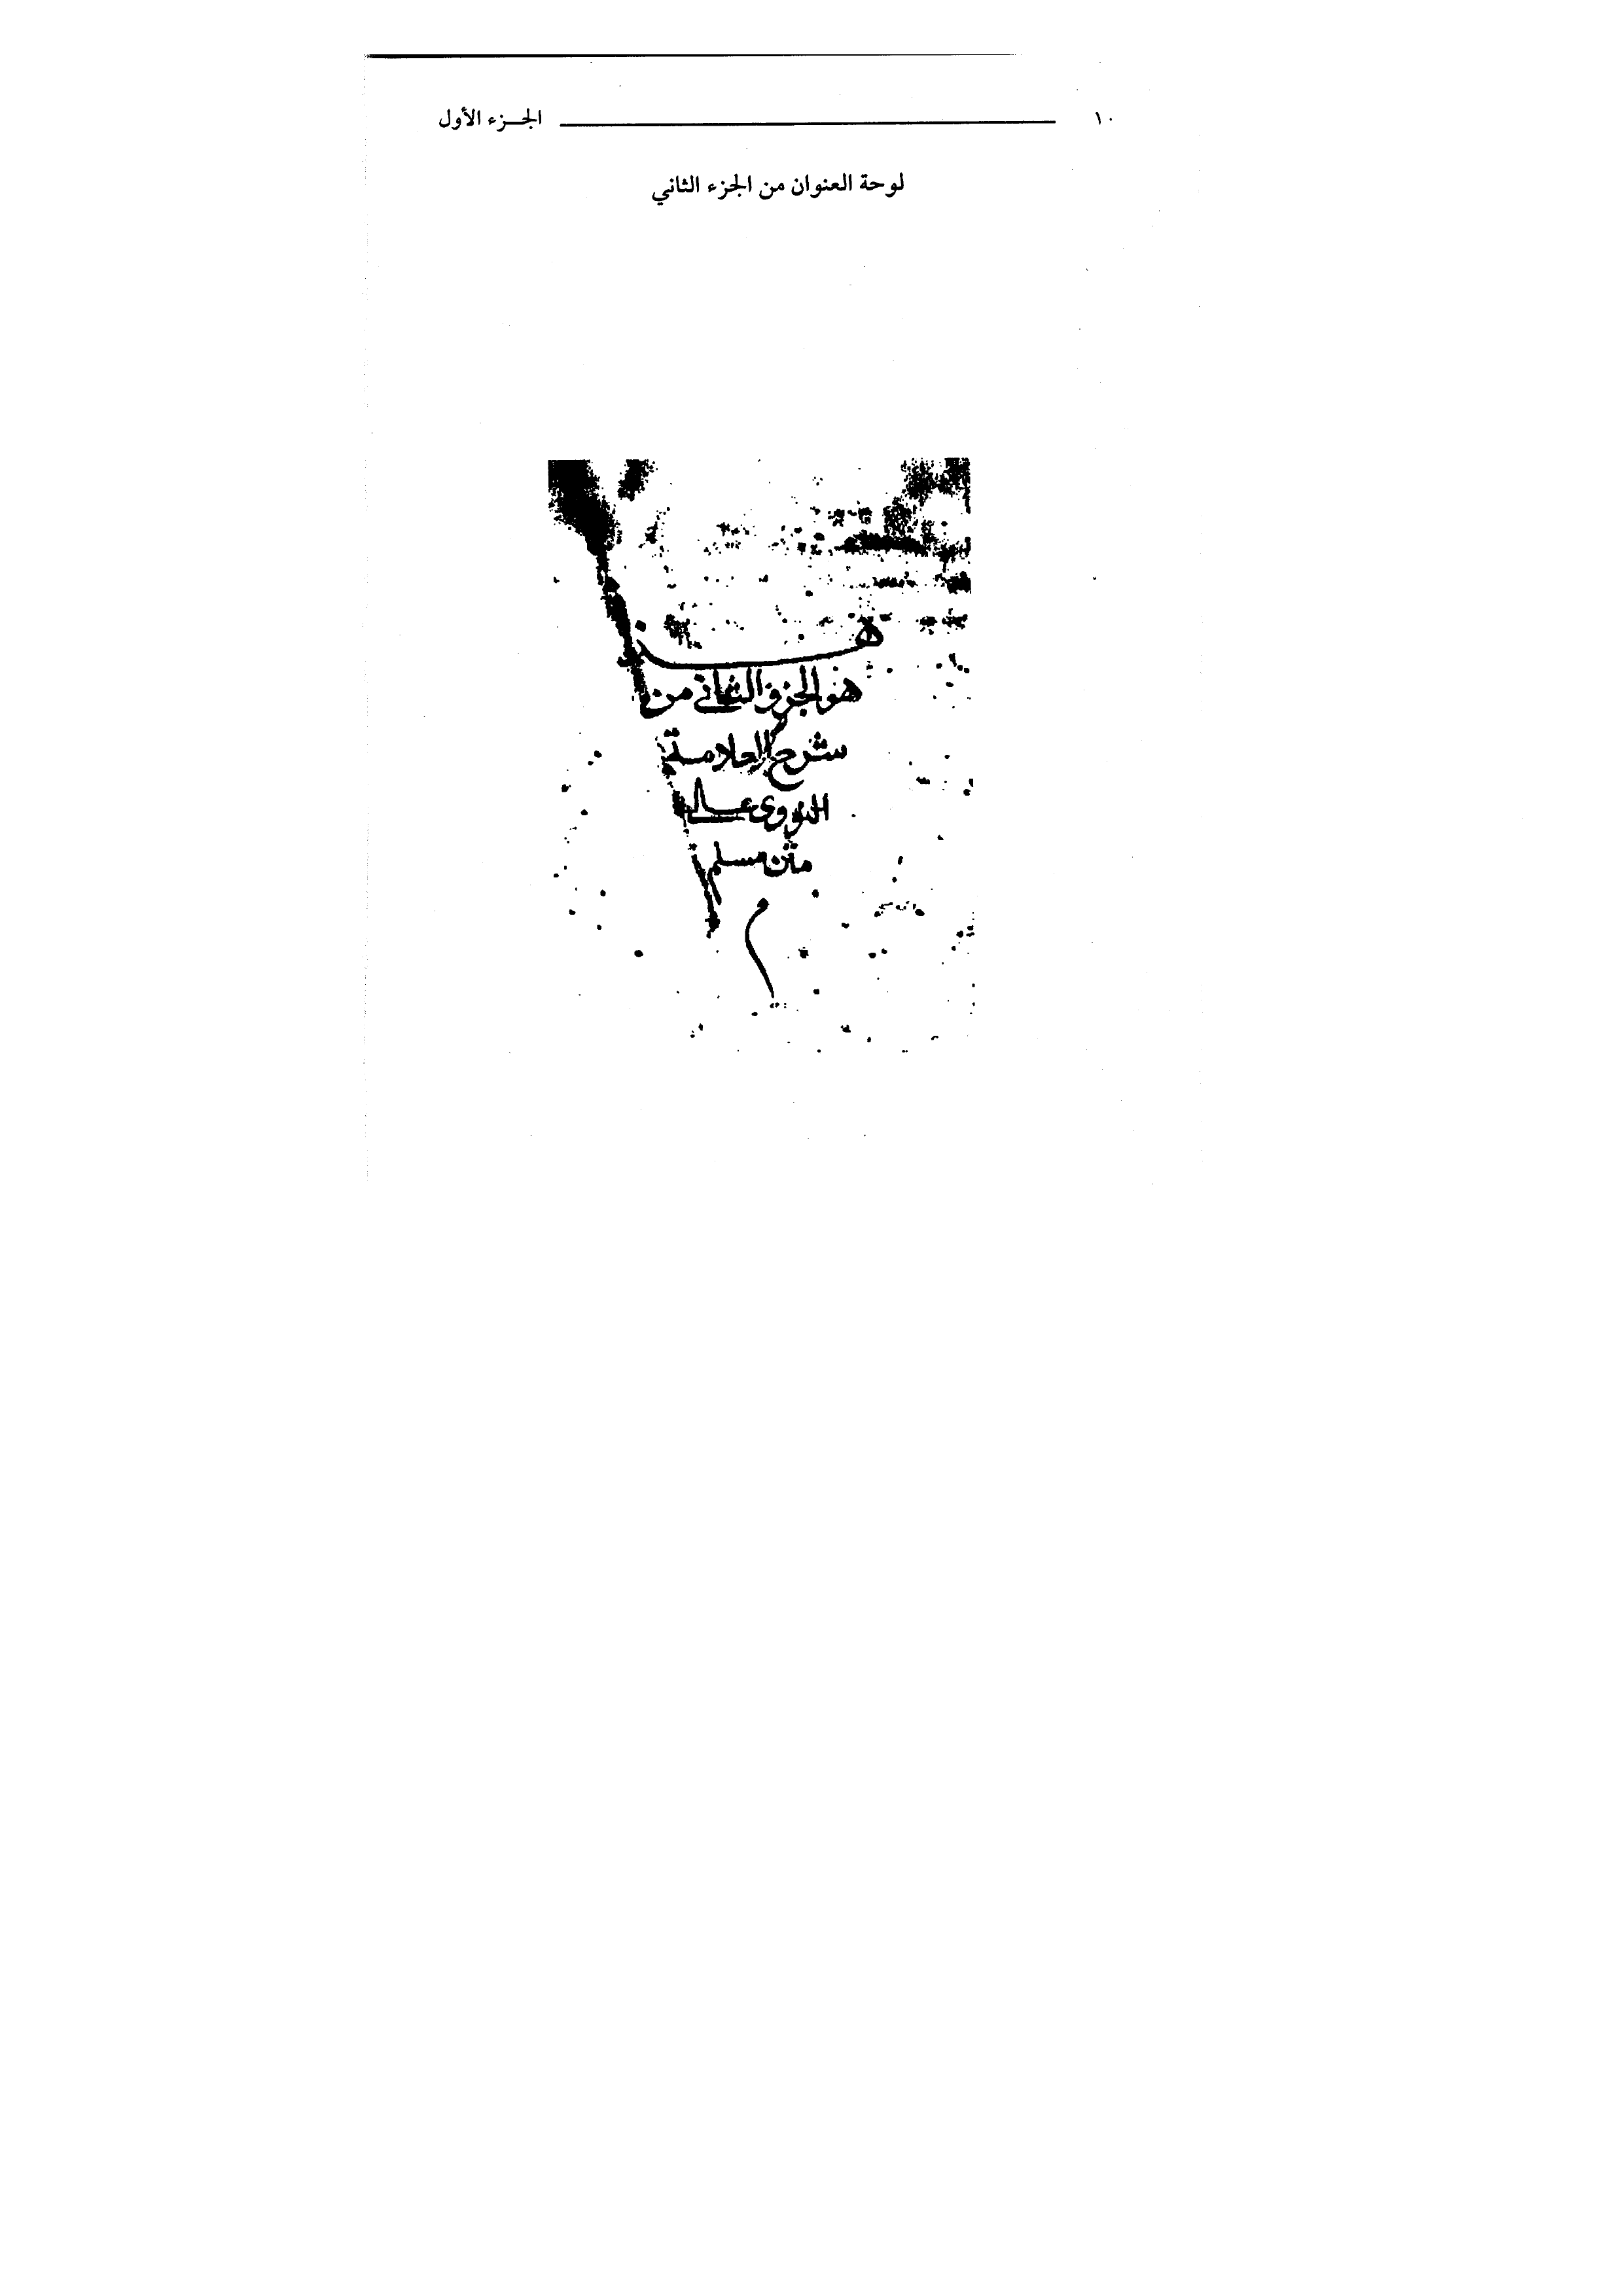 ١٠ الجزء الأول
لوحة العنوان من الجزء الثاني
هذا
هو الجزؤ الثاني من
شرح العلامة
النووى على
متن مسلم
م